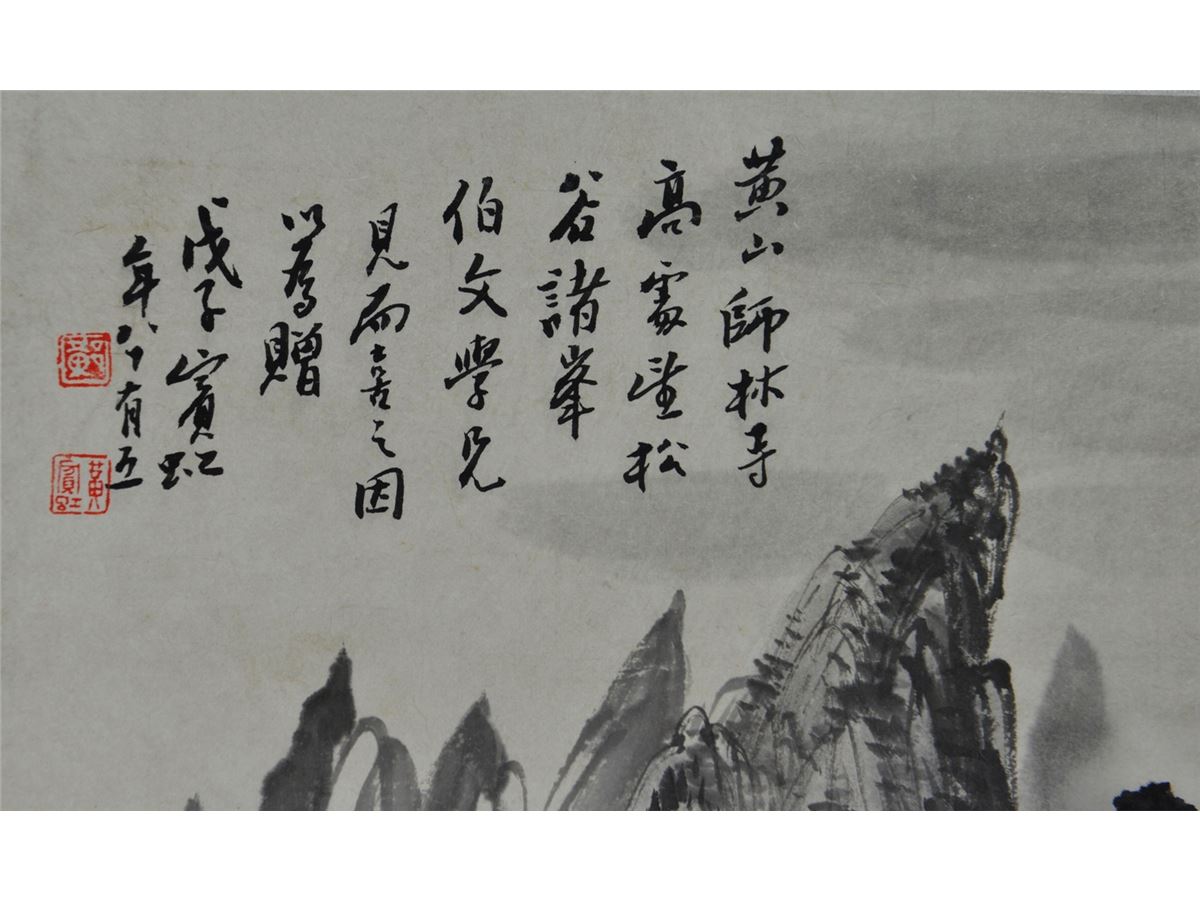 黃山師林寺
高處望松
谷諸峯
伯文學兄
見而喜之因
以為贈
戊子賓虹
年八十有五
黃賓虹